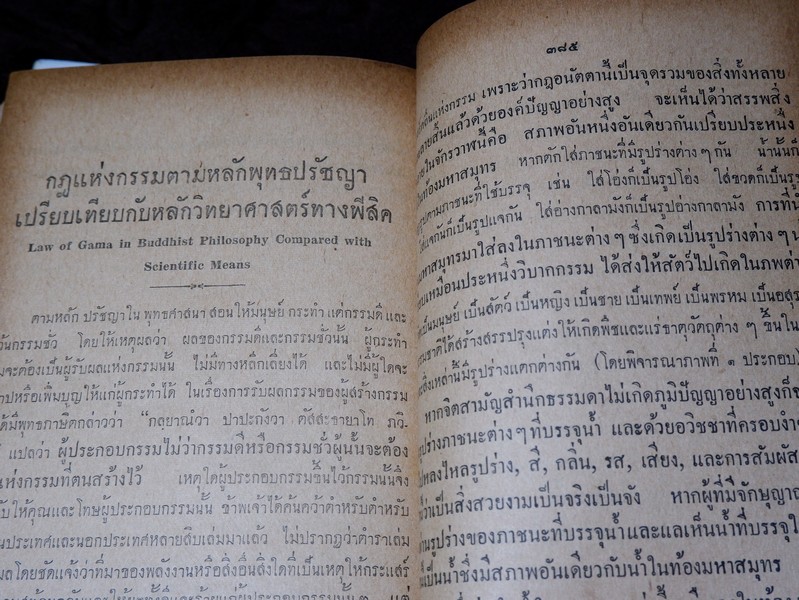 กฎแห่งกรรมตามหลักพุทธปรัชญา
เปรียบเทียบกับหลักวิทยาศาสตร์ทางฟิสิค
Law of Gama in Buddhist Philosophy Compared with
Scientific Means
ตามหลัก ปรัชญาใน พุทธศาสนา สอนให้มนุษย์ กระทำ แต่กรรมดี และ
เว้นกรรมชั่ว โดยให้เหตุผลว่า ผลของกรรมดีและกรรมชั่วนั้น ผู้กระทำ
จะต้องเป็นผู้รับผลแห่งกรรมนั้น ไม่มีทางหลีกเลี่ยงได้ และไม่มีผู้ใดจะ
หรือเพิ่มบุญให้แก่ผู้กระทำได้ ในเรื่องการรับผลกรรมของผู้สร้างกรรม
ได้มีพุทธภาษิตกล่าวว่า “กลฺยาณํวา ปาปะกังวา ตัสสะธายาโท ภวิ-
แปลว่า ผู้ประกอบกรรมไม่ว่ากรรมดีหรือกรรมชั่วผู้นั้นจะต้อง
แห่งกรรมที่ตนสร้างไว้ เหตุใดผู้ประกอบกรรมขึ้นไว้กรรมนั้นจึง
ให้คุณและโทษผู้ประกอบกรรมนั้น ข้าพเจ้าได้ค้นคว้าตำหรับตำหรับ
ประเทศและนอกประเทศหลายสิบเล่มมาแล้ว ไม่ปรากฏว่าตำราเล่ม
โดยชัดแจ้งว่าที่มาของพลังงานหรือสิ่งอื่นสิ่งใดที่เป็นเหตุให้กระแสร์
๓๘๕
แห่งกรรม เพราะว่ากฎอนัตตานี้เป็นจุดรวมของสิ่งทั้งหลาย
สิ้นแล้วด้วยองค์ปัญญาอย่างสูง จะเห็นได้ว่าสรรพสิ่ง
ในจักรวาฬนี้คือ สภาพอันหนึ่งอันเดียวกันเปรียบประหนึ่ง
ท้องมหาสมุทร หากตักใส่ภาชนะที่มีรูปร่างต่าง ๆ กัน น้ำนั้นก็
ตามภาชนะที่ใช้บรรจุ เช่น ใส่โอ่งก็เป็นรูปโอ่ง ใส่ขวดก็เป็นรูป
ใส่แจกันก็เป็นรูปแจกัน ใส่อ่างกาลามังก็เป็นรูปอ่างกาลามัง การที่น้ำ
มหาสมุทรมาใส่ลงในภาชนะต่าง ๆ ซึ่งเกิดเป็นรูปร่างต่าง ๆ
เหมือนประหนึ่งวิบากกรรม ได้ส่งให้สัตว์ไปเกิดในภพต่าง
เป็นมนุษย์ เป็นสัตว์ เป็นหญิง เป็นชาย เป็นเทพย์ เป็นพรหม เป็นอสุร
ได้สร้างสรรปรุงแต่งให้เกิดพืชและแร่ธาตุวัตถุต่าง ๆ ขึ้นใน
สิ่งเหล่านั้มีรูปร่างแตกต่างกัน (โดยพิจารณาภาพที่ ๑ ประกอบ)
หากจิตสามัญสำนึกธรรมดาไม่เกิดภูมิปัญญาอย่างสูงก็
รูปร่างภาชนะต่าง ๆ ที่บรรจุน้ำ และด้วยอวิชชาที่ครอบงำ
หลงไหลรูปร่าง, สี, กลิ่น, รส, เสียง, และการสัมผัส
ว่าเป็นสิ่งสวยงามเป็นจริงเป็นจัง หากผู้ที่มีจักษุญาณ
รูปร่างของภาชนะที่บรรจุน้ำและแลเห็นน้ำที่บรรจุ
เป็นน้ำซึ่งมีสภาพอันเดียวกับน้ำในท้องมหาสมุทร